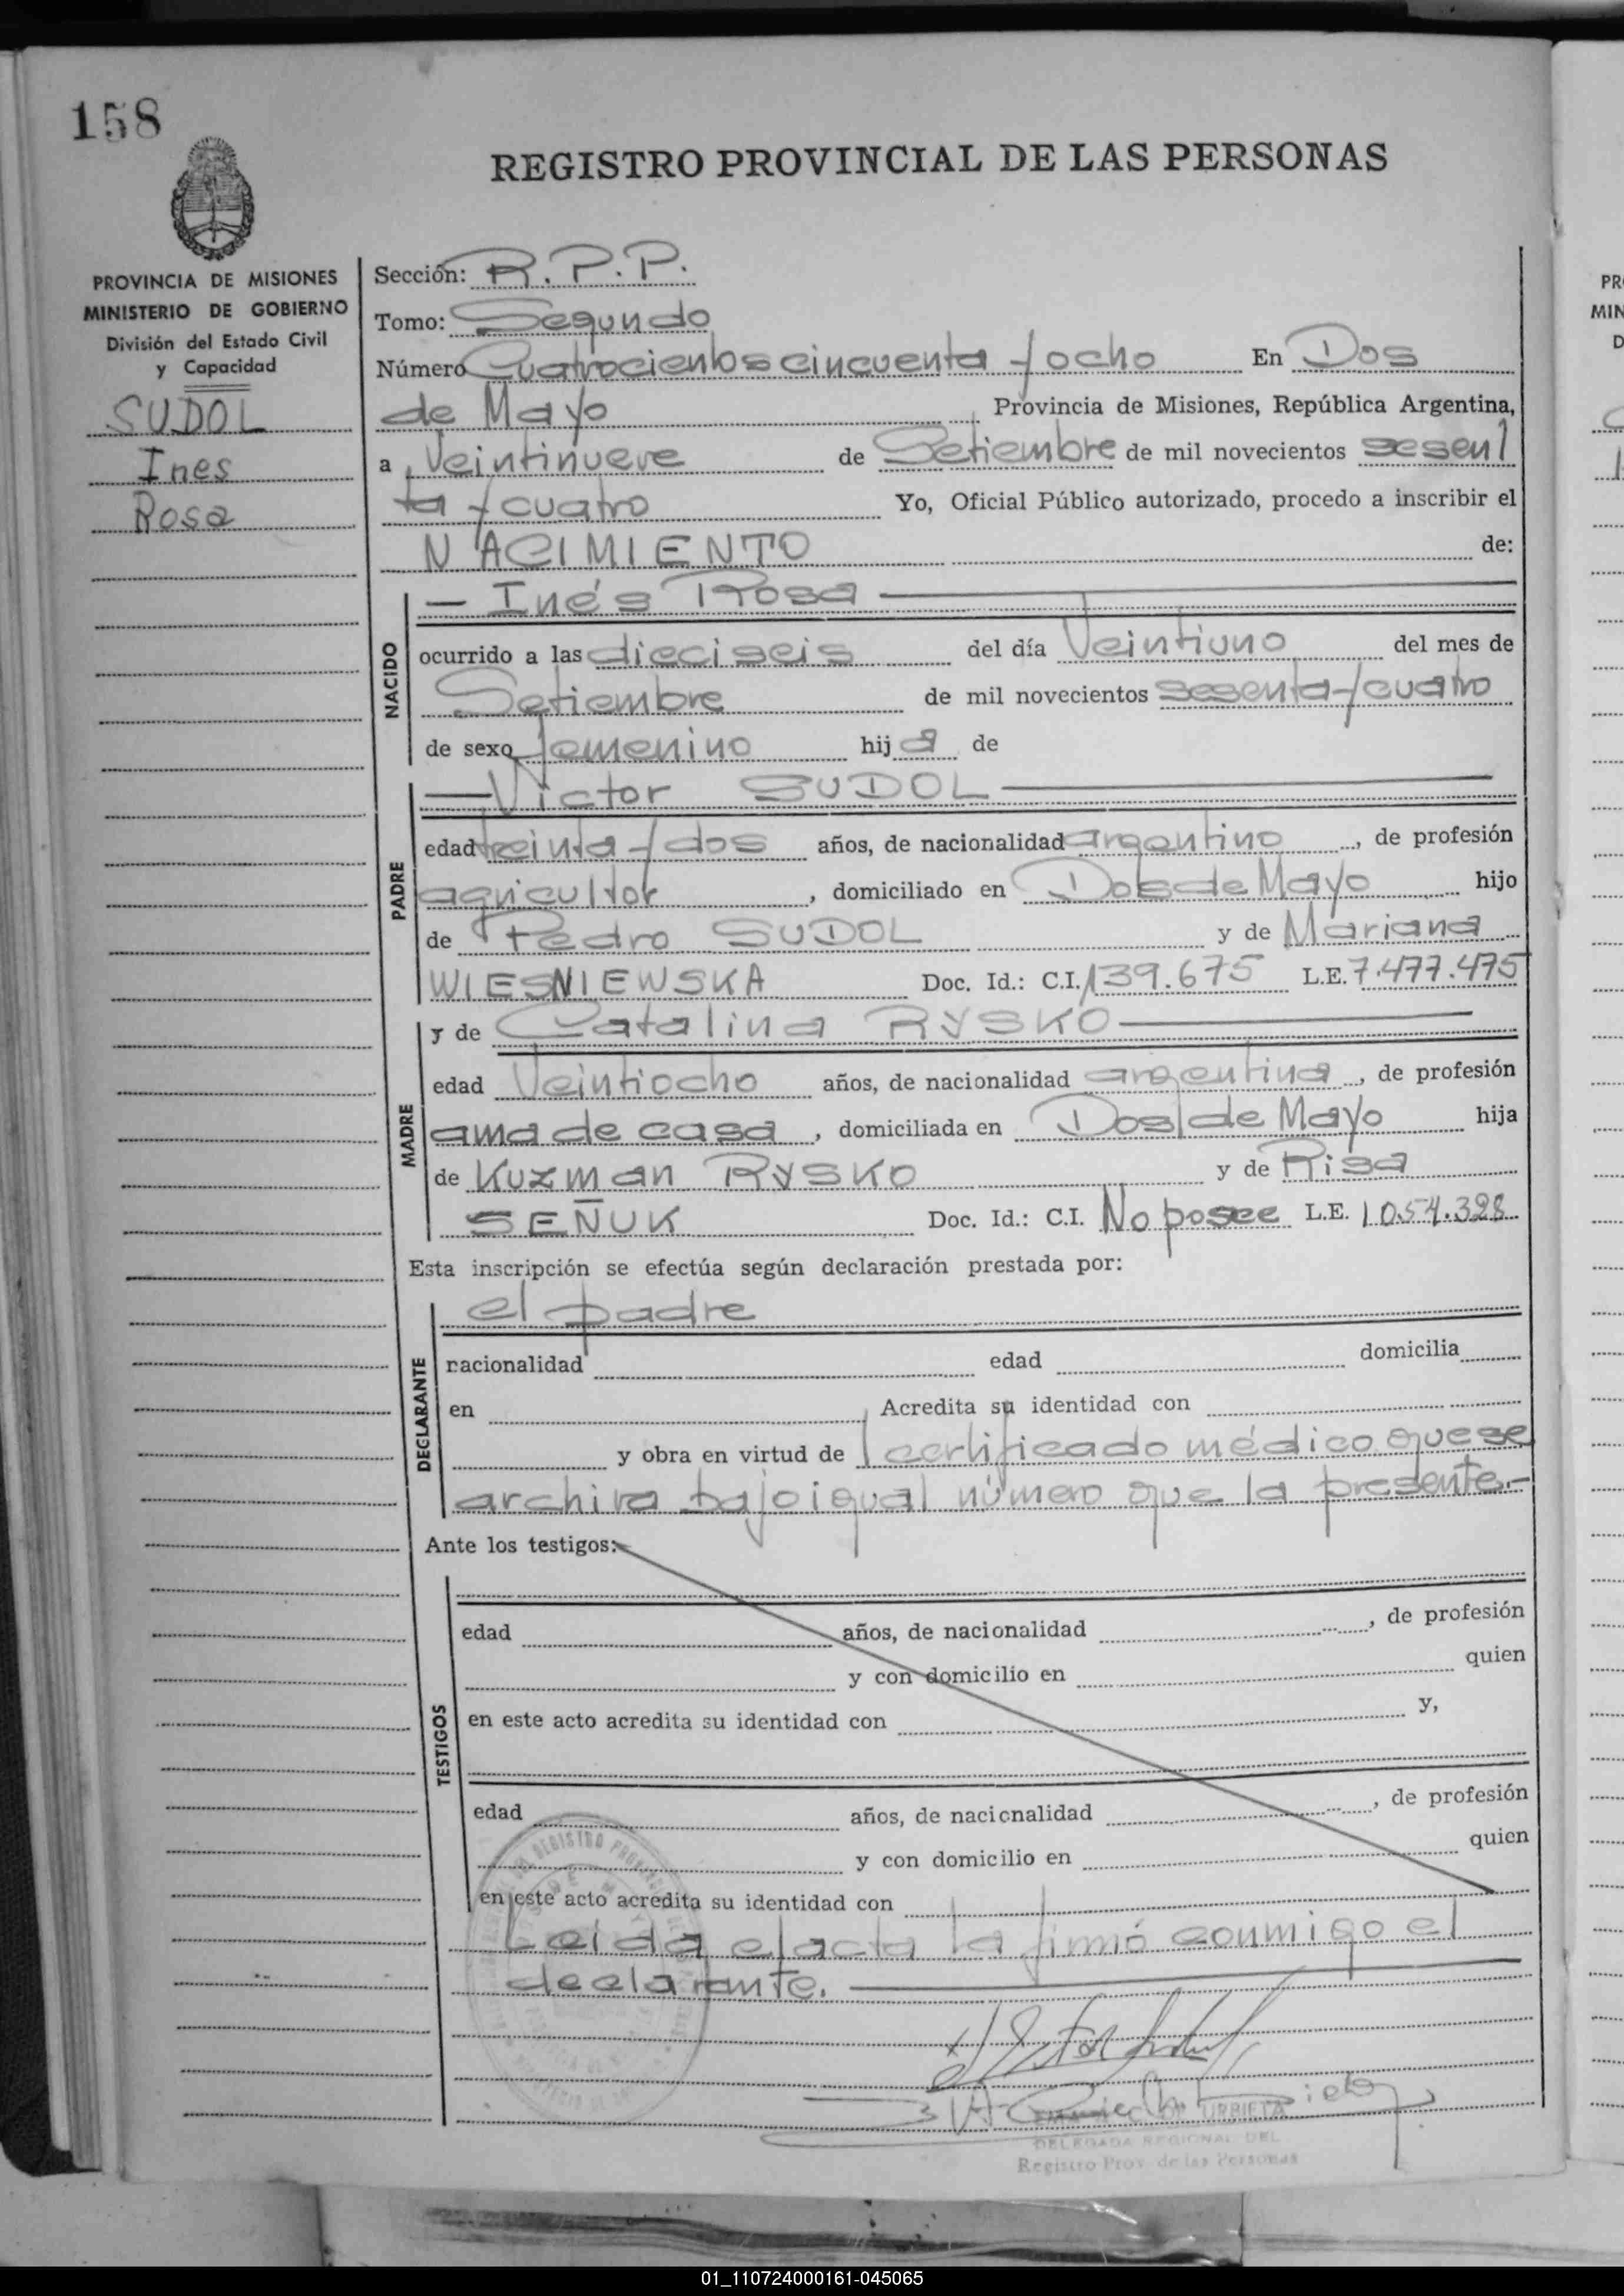 158
REGISTRO PROVINCIAL DE LAS PERSONAS
PROVINCIA DE MISIONES
MINISTERIO DE GOBIERNO
División del Estado Civil
y Capacidad
SUDOL
Ines
Rosa
Sección: R.P.P.
Tomo: Segundo
Número Cuatrocientos cincuenta y ocho En Dos
de Mayo Provincia de Misiones, República Argentina,
a Veintinueve de Setiembre de mil novecientos sesen
ta y cuatro Yo, Oficial Público autorizado, procedo a inscribir el
NACIMIENTO de:
NACIDO
— Inés Rosa —
ocurrido a las dieciseis del día Veintiuno del mes de
Setiembre de mil novecientos sesenta y cuatro
de sexo femenino hija de
PADRE
— Victor SUDOL —
edad treinta y dos años, de nacionalidad argentino, de profesión
agricultor, domiciliado en Dos de Mayo hijo
de Pedro SUDOL y de Mariana
WIESNIEWSKA Doc. Id.: C.I. 139.675 L.E. 7.477.475
MADRE
y de Catalina RYSKO —
edad Veintiocho años, de nacionalidad argentina, de profesión
ama de casa, domiciliada en Dos de Mayo hija
de Kuzman RYSKO y de Risa
SEÑUK Doc. Id.: C.I. No posee L.E. 1.054.328
Esta inscripción se efectúa según declaración prestada por:
DECLARANTE
el padre
nacionalidad edad domicilia
en Acredita su identidad con
y obra en virtud de certificado médico que se
archiva bajo igual número que la presente.-
Ante los testigos:
TESTIGOS
edad años, de nacionalidad , de profesión
y con domicilio en quien
en este acto acredita su identidad con y,
edad años, de nacionalidad , de profesión
y con domicilio en quien
en este acto acredita su identidad con
Leida el acta la firmó conmigo el
declarante. —
URBIETA
DELEGADA REGIONAL DEL
Registro Prov. de las Personas
01_110724000161-045065